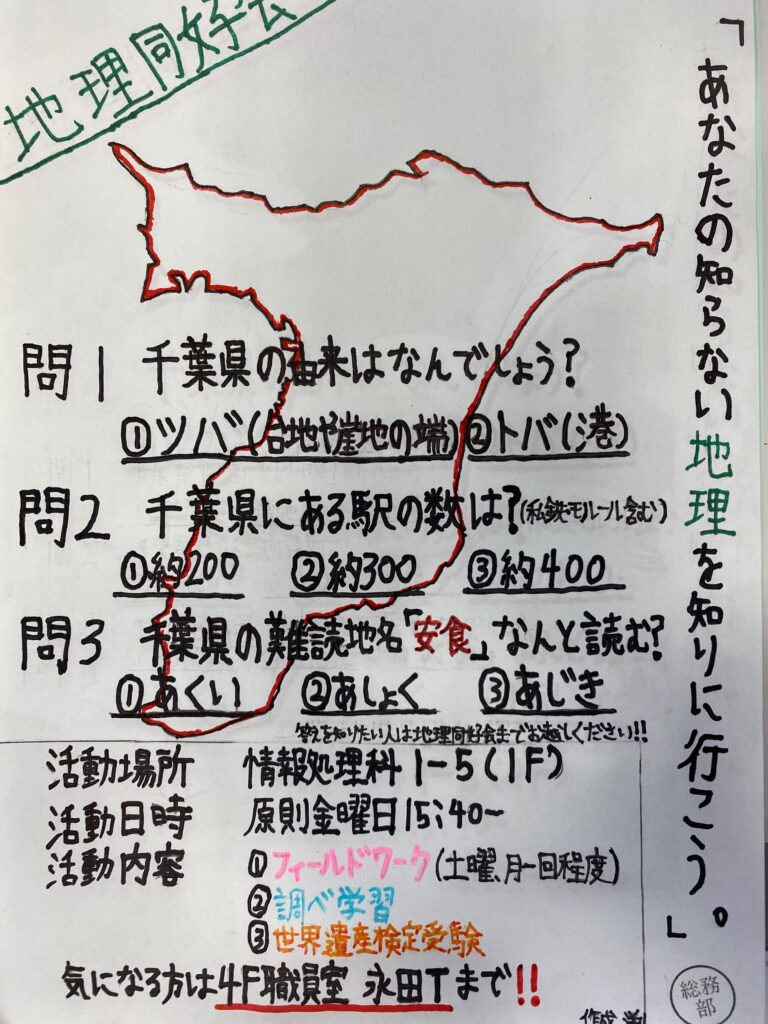 地理同好会
「あなたの知らない地理を知りに行こう。」
問1 千葉県の由来はなんでしょう?
①ツバ(台地や崖地の端) ②トバ(港)
問2 千葉県にある駅の数は?(私鉄モノレール含む)
①約200 ②約300 ③約400
問3 千葉県の難読地名「安食」なんと読む?
①あくい ②あしょく ③あじき
答えを知りたい人は地理同好会までお越しください!!
活動場所 情報処理科1-5(1F)
活動日時 原則金曜日15:40~
活動内容 ①フィールドワーク(土曜、月一回程度)
②調べ学習
③世界遺産検定受験
気になる方は4F職員室 永田Tまで!!
総務部
作成